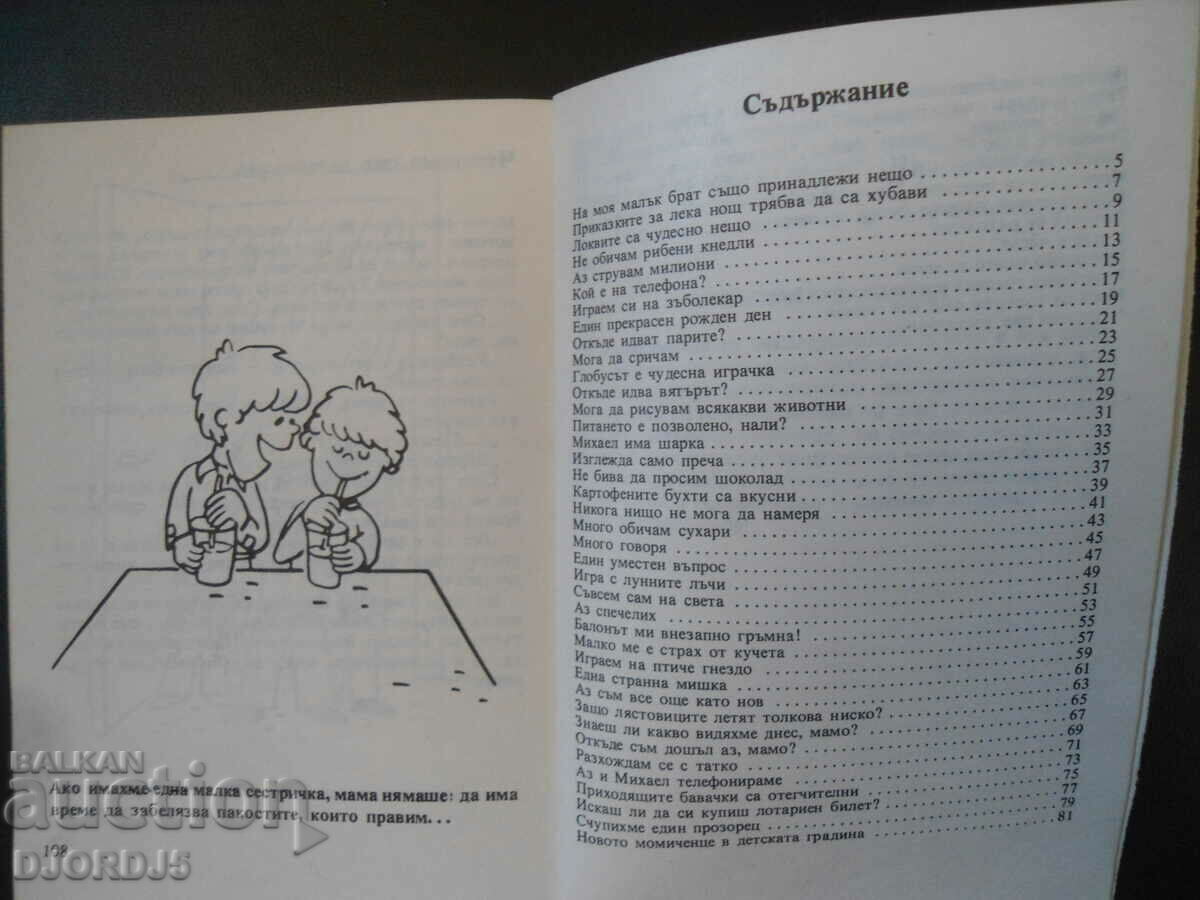 Ако имахме една малка сестричка, мама нямаше: да има
време да забелязва пакостите, които правим...
108
Съдържание
На моя малък брат също принадлежи нещо 5
Приказките за лека нощ трябва да са хубави 7
Локвите са чудесно нещо 9
Не обичам рибени кнедли 11
Аз струвам милиони 13
Кой е на телефона? 15
Играем си на зъболекар 17
Един прекрасен рожден ден 19
Откъде идват парите? 21
Мога да сричам 23
Глобусът е чудесна играчка 25
Откъде идва вятърът? 27
Мога да рисувам всякакви животни 29
Питането е позволено, нали? 31
Михаел има шарка 33
Изглежда само преча 35
Не бива да просим шоколад 37
Картофените бухти са вкусни 39
Никога нищо не мога да намеря 41
Много обичам сухари 43
Много говоря 45
Един уместен въпрос 47
Игра с лунните лъчи 49
Съвсем сам на света 51
Аз спечелих 53
Балонът ми внезапно гръмна! 55
Малко ме е страх от кучета 57
Играем на птиче гнездо 59
Една странна мишка 61
Аз съм все още като нов 63
Защо лястовиците летят толкова ниско? 65
Знаеш ли какво видяхме днес, мамо? 67
Откъде съм дошъл аз, мамо? 69
Разхождам се с татко 71
Аз и Михаел телефонираме 73
Приходящите бавачки са отегчителни 75
Искаш ли да си купиш лотариен билет? 77
Счупихме един прозорец 79
Новото момиченце в детската градина 81
BALKAN
auction
DJORDJ5